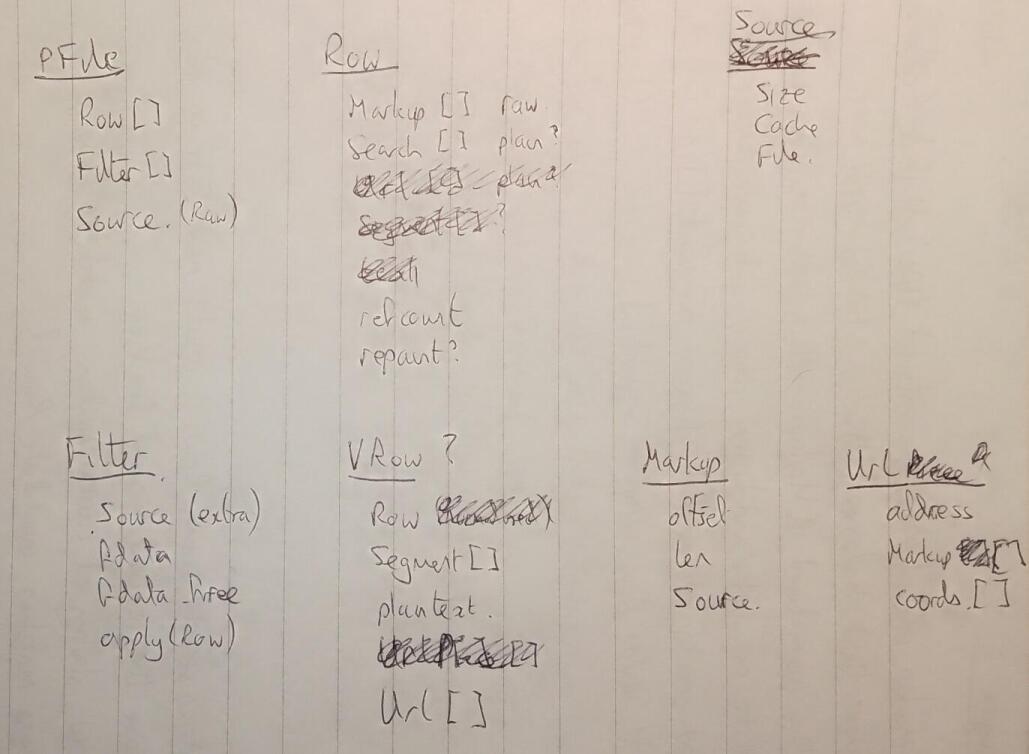 pFile
Row []
Filter []
Source. (Raw)
Row
Markup [] raw
Search [] plain?
refcount
repaint?
Source
Size
Cache
File.
Filter
Source (extra)
fdata
fdata_free
apply (Row)
VRow ?
Row
Segment []
plaintext.
Url []
Markup
offset
len
Source.
Url
address
Markup []
coords. []